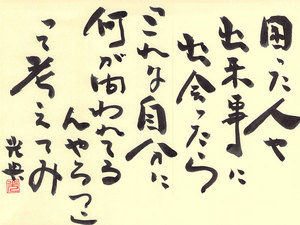 困った人や
出来事に
出会ったら
これな自分に
何が問われてる
んやろつこ
って考えてみ